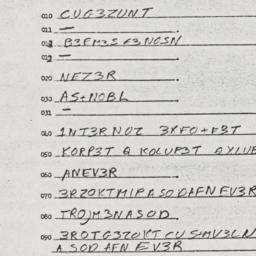 010 CUG3ZUNT
011 —
012 B3FM3S F3NOSN
012 —
020 NEZ3R
030 AS+NOBL
031 —
040 1NT3RNOZ 3XFO+F3T
050 KORP3T Q KOLUP3T QXLUE
060 ANEV3R
070 3RZOKTMIPASODAFNEV3R
080 TROJM3NASOD
090 3ROTG3ZOKTCUSMV3LN
ASODAFNEV3R